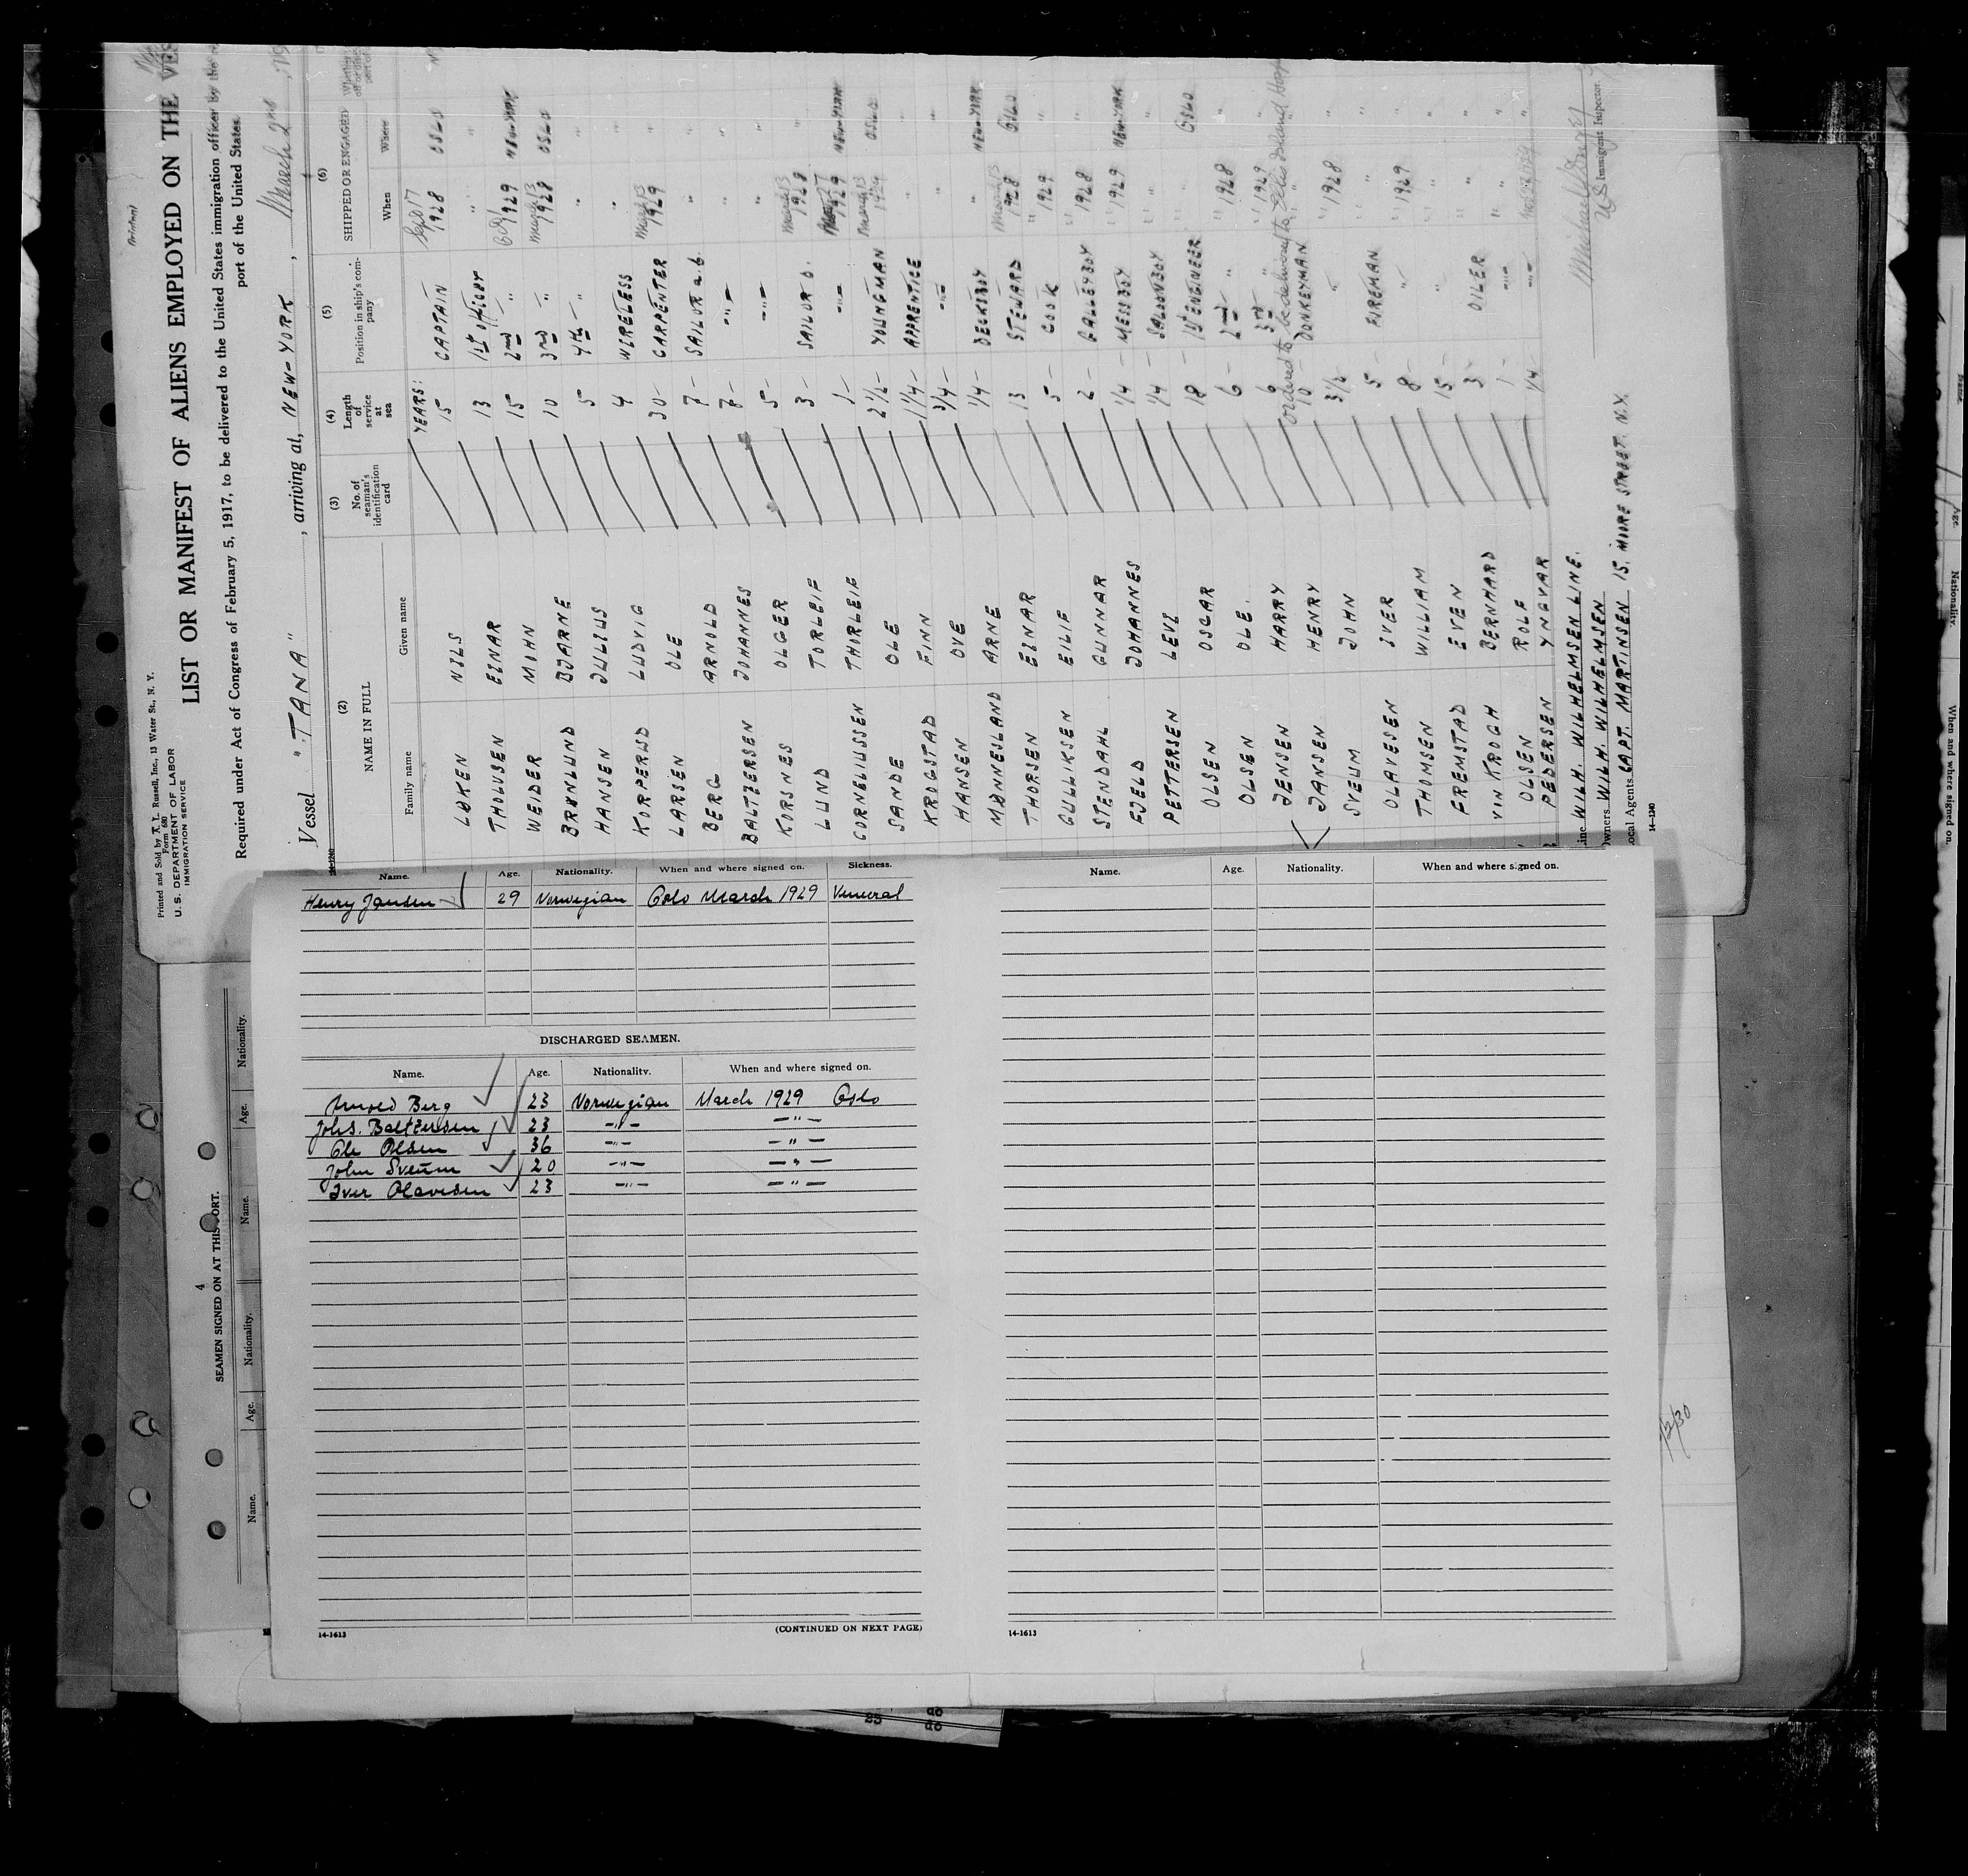 Printed and Sold by A. Y. Russell, Inc., 13 Water St., N. Y.
Form 680
U. S. DEPARTMENT OF LABOR
IMMIGRATION SERVICE
LIST OR MANIFEST OF ALIENS EMPLOYED ON THE VES
Required under Act of Congress of February 5, 1917, to be delivered to the United States immigration officer by the
port of the United States.
Vessel "TANA", arriving at, NEW-YORK, March 2nd, 19
(2) (3) (4) (5) (6)
NAME IN FULL No. of seaman's identification card Length of service at sea Position in ship's company SHIPPED OR ENGAGED
Family name Given name When Where
YEARS:
LØKEN NILS 15 CAPTAIN 1928 OSLO
THOLUSEN EINAR 13 1st officer " "
WEIDER MOHN 15 2nd " 1929 NEW-YORK
BRYNLUND BJARNE 10 3rd " March 13 1928 OSLO
HANSEN JULIUS 5 4th " " "
KORPERUD LUDVIG 4 WIRELESS " "
LARSEN OLE 30 CARPENTER March 13 1929 "
BERG ARNOLD 7 SAILOR a.b. " "
BALTZERSEN JOHANNES 7 -"- " "
KORSNES OLGER 5 -"- " "
LUND TORLEIF 3 SAILOR O. March 13 1928 "
CORNELIUSSEN THORLEIF 1 -"- 1929 NEW-YORK
SANDE OLE 2 1/2 YOUNGMAN March 13 1929 OSLO
KROGSTAD FINN 1 1/4 APPRENTICE " "
HANSEN OVE 3/4 -"- " "
MØNNESLAND ARNE 1/4 DECKSBOY NEW-YORK
THORSEN EINAR 13 STEWARD March 13 1928 OSLO
GULLIKSEN EILIF 5 COOK " 1929 "
STENDAHL GUNNAR 2 GALLEYBOY " 1928 "
FJELD JOHANNES 1/4 MESSBOY " 1929 NEW-YORK
PETTERSEN LEVI 1/4 SALOONBOY " " "
OLSEN OSCAR 18 1st ENGINEER " " OSLO
OLSEN OLE. 6 2nd " " 1928 "
JENSEN HARRY 9 3rd " " 1929 "
ordered to be delivered to Ellis Island Hosp
JANSEN HENRY 10 DONKEYMAN " " "
SVEUM JOHN 3 1/2 " " 1928 "
OLAVESEN IVER 5 FIREMAN " " "
THOMSEN WILLIAM 8 " " 1929 "
FREMSTAD EVEN 15 " " "
VIN KROGH BERNHARD 3 OILER " "
OLSEN ROLF 1 -"- " "
PEDERSEN YNGVAR 1/4 -"- "
ine WILH. WILHELMSEN LINE.
Owners WILH. WILHELMSEN
Local Agents CAPT. MARTINSEN 15. MOORE STREET. N.Y.
U S Immigrant Inspector.
14-1240
Name. Age. Nationality. When and where signed on. Sickness.
Henry Jansen 29 Norwegian Oslo March 1929 Veneral
DISCHARGED SEAMEN.
Name. Age. Nationality. When and where signed on.
Arnold Berg 23 Norwegian March 1929 Oslo
Johs. Baltzersen 23 -"- -"-
Ole Olsen 36 -"- -"-
John Sveum 20 -"- -"-
Iver Olavesen 23 -"- -"-
14-1613 (CONTINUED ON NEXT PAGE)
Name. Age. Nationality. When and where signed on.
14-1613
4
SEAMEN SIGNED ON AT THIS PORT.
Name. Age. Nationality. Name. Age. Nationality.
/2/30
Age. Nationality. When and where signed on.